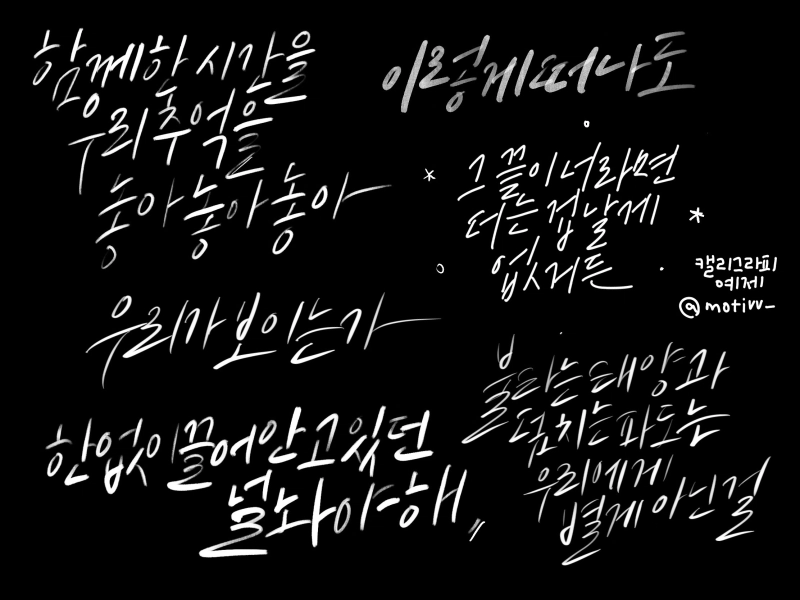 함께한 시간을
우리 추억을
놓아 놓아 놓아
이렇게 떠나도
그 끝이 너라면
더는 겁날 게
없거든
캘리그라피
예제
@motiw_
우리가 보이는가
불타는 태양과
덮치는 파도는
우리에게
별게 아닌걸
한없이 끌어안고 있던
널 놔야 해